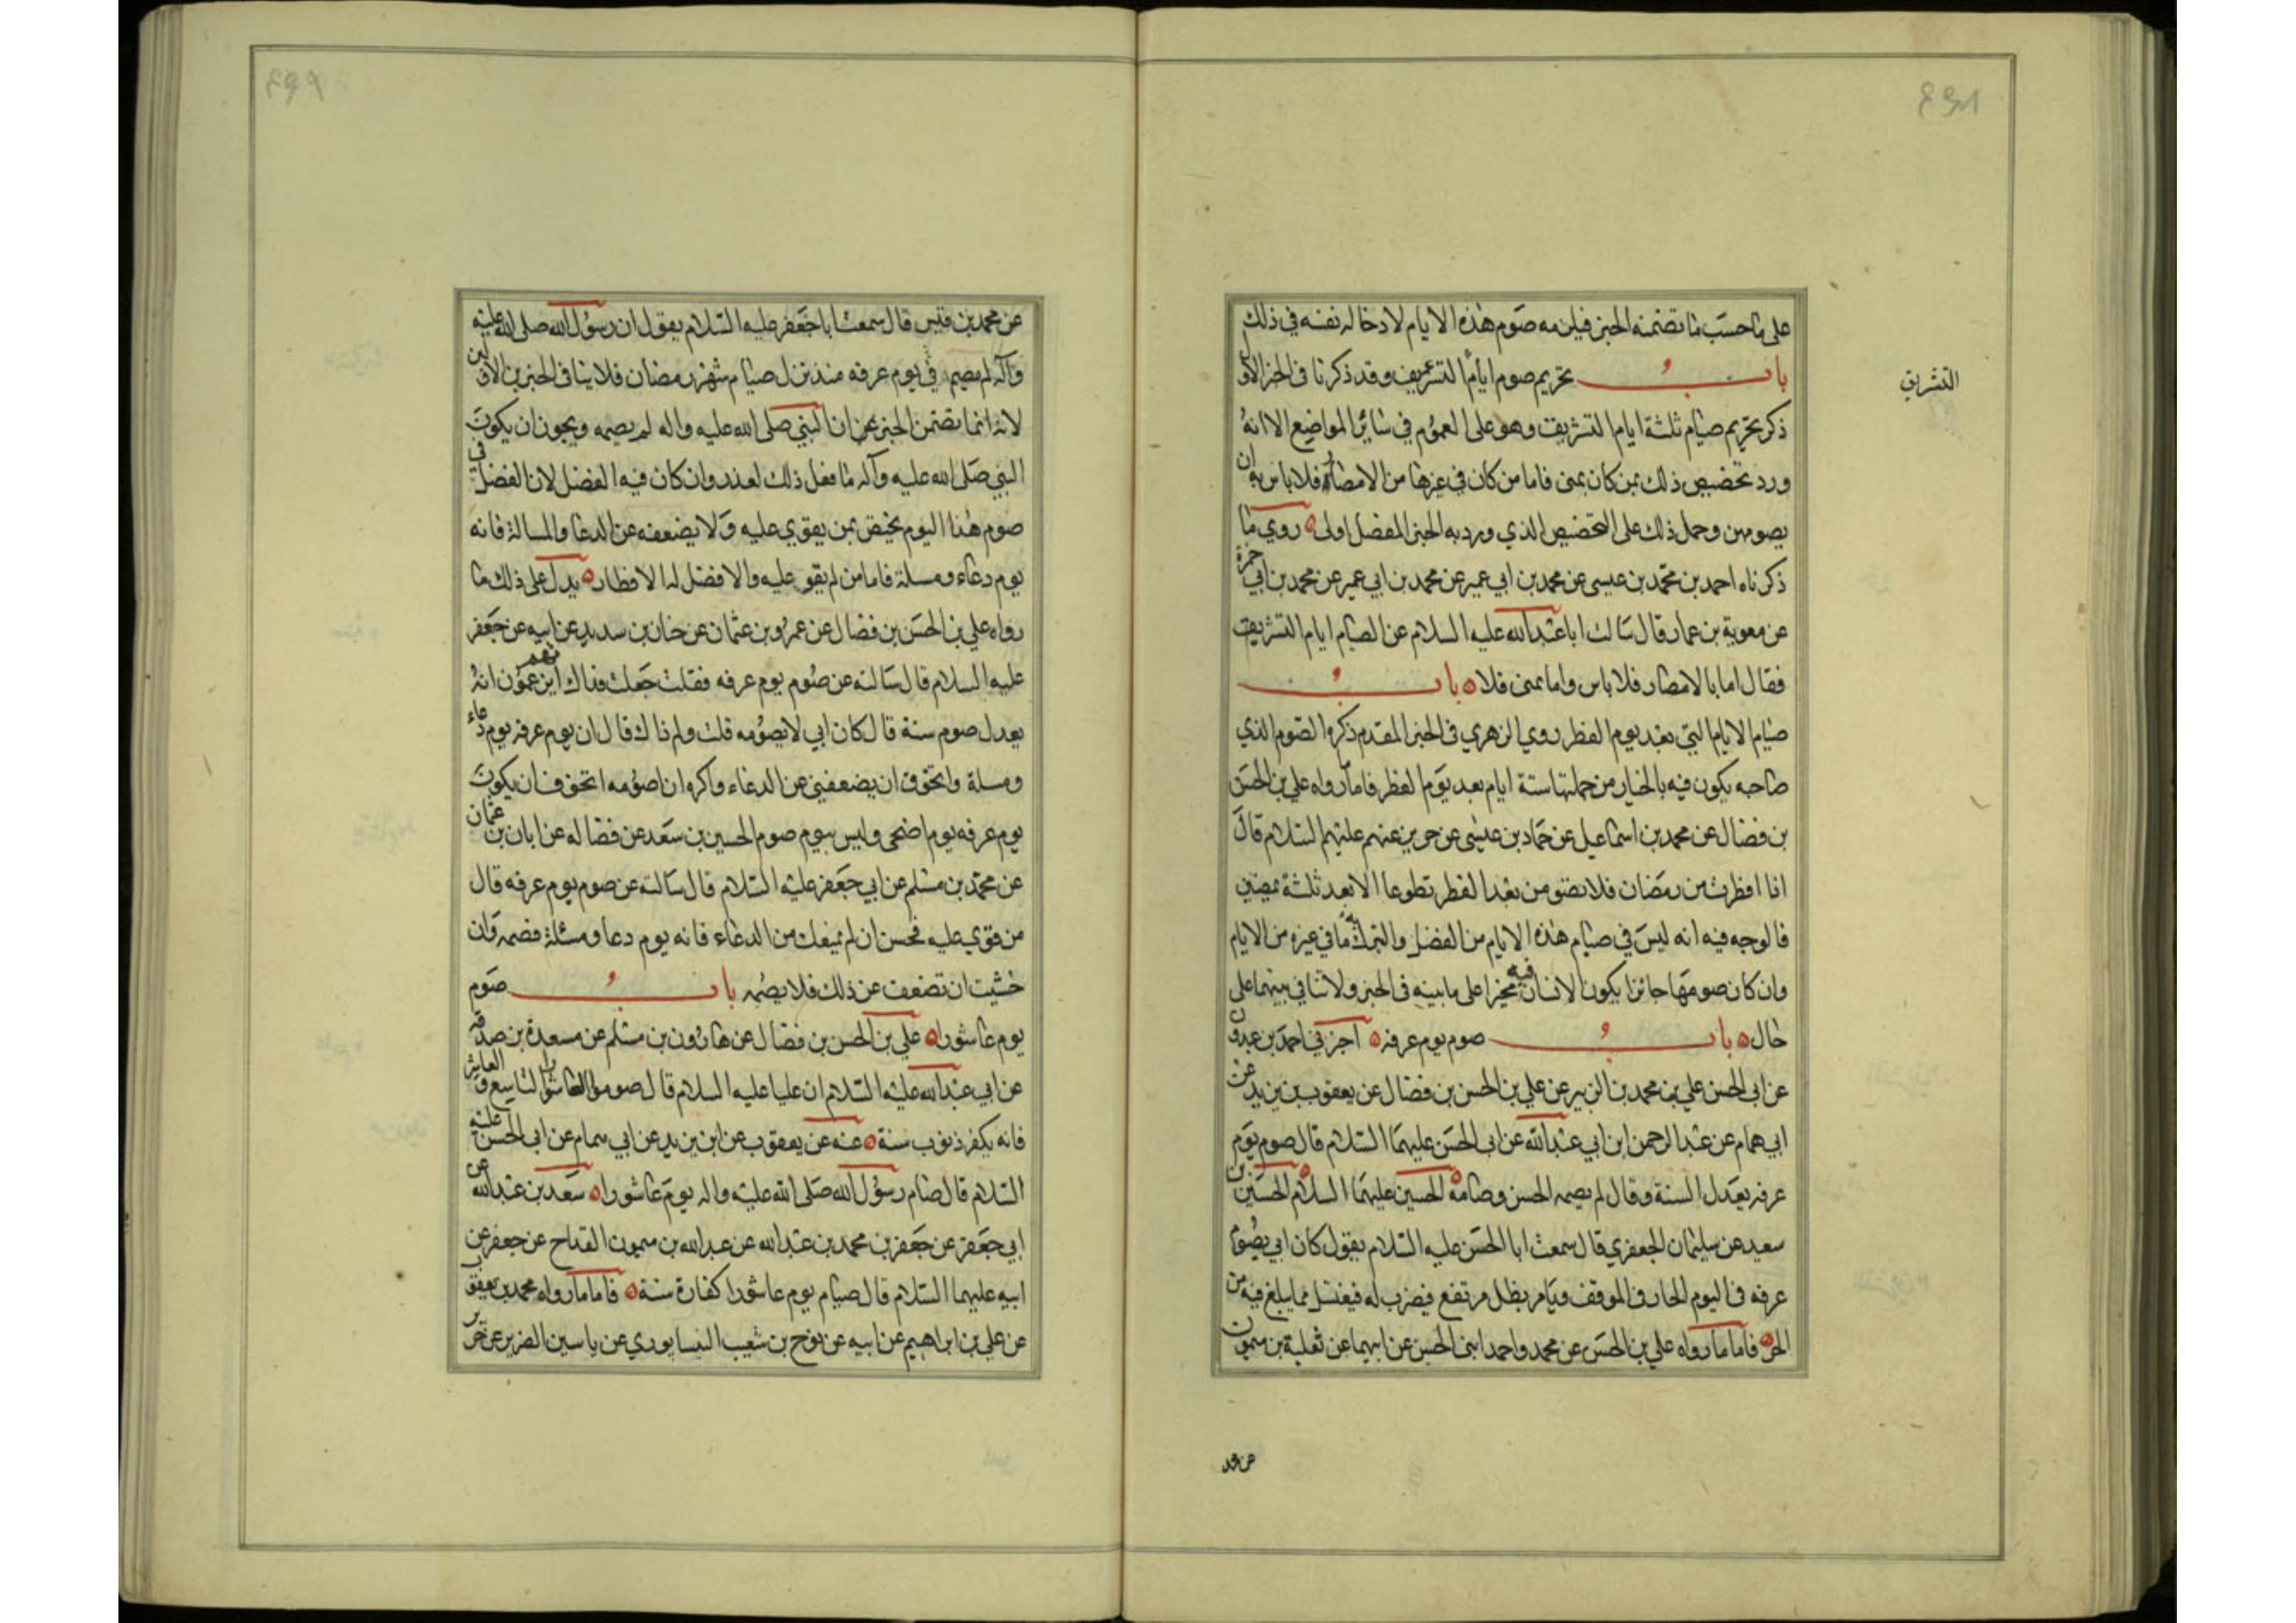 على ما حسب ما تضمنه الخبر فيلزمه صوم هذه الايام لادخاله نفسه في ذلك
باب تحريم صوم ايام التشريق وقد ذكرنا في الجزء الاول
التشريق
ذكر تحريم صيام ثلثة ايام التشريق وهو على العموم في سائر المواضع الا انه
ورد تخصيص ذلك بمن كان بمنى فاما من كان في غيرها من الامصار فلا باس به ان
يصومهن وحمل ذلك على التخصيص الذي ورد به الخبر المفصل اولى روي ما
ذكرناه احمد بن محمد بن عيسى عن محمد بن ابي عمير عن محمد بن ابي عمير عن محمد بن ابي حمزة
عن معوية بن عمار قال سالت ابا عبدالله عليه السلام عن الصيام ايام التشريق
فقال اما بالامصار فلا باس واما بمنى فلا باب
صيام الايام التي بعد يوم الفطر روي الزهري في الخبر المقدم ذكره الصوم الذي
صاحبه يكون فيه بالخيار من جملتها ستة ايام بعد يوم الفطر فاما رواه علي بن الحسن
بن فضال عن محمد بن اسماعيل عن حماد بن عيسى عن حريز عنهم عليهم السلام قال
اذا افطرت من رمضان فلا تصومن بعد الفطر تطوعا الا بعد ثلثة يمضين
فالوجه فيه انه ليس في صيام هذه الايام من الفضل والتبرك به ما في غيره من الايام
وان كان صومها جائزا يكون الانسان فيه مخيرا على ما بينه في الخبر ولا تنافي بينهما على
حال باب صوم يوم عرفه اخبرني احمد بن عبدون
عن ابي الحسن علي بن محمد بن الزبير عن علي بن الحسن بن فضال عن يعقوب بن يزيد عن
ابي همام عن عبد الرحمن ابن ابي عبدالله عن ابي الحسن عليهما السلام قال صوم يوم
عرفه يعدل السنة وقال لم يصمه الحسن وصامه الحسين عليهما السلام الحسين بن
سعيد عن سليمان الجعفري قال سمعت ابا الحسن عليه السلام يقول كان ابي يصوم
عرفه في اليوم الحار في الموقف ويامر بظل مرتفع فيضرب له فيغتسل مما يبلغ فيه من
الحر فاما ما رواه علي بن الحسن عن محمد واحمد ابني الحسن عن ابيهما عن ثعلبة بن ميمون
عن محمد
عن محمد بن قيس قال سمعت ابا جعفر عليه السلام يقول ان رسول الله صلى الله عليه
وآله لم يصم في يوم عرفه منذ نزل صيام شهر رمضان فلا ينافي الخبرين الاولين
لانه انما تضمن الخبر عن ان النبي صلى الله عليه واله لم يصمه ويجوز ان يكون
النبي صلى الله عليه وآله ما فعل ذلك لعذر وان كان فيه الفضل لان الفضل في
صوم هذا اليوم يختص بمن يقوي عليه ولا يضعفه عن الدعا والمسالة فانه
يوم دعاء ومسلة فاما من لم يقو عليه والافضل له الافطار يدل على ذلك ما
رواه علي بن الحسن بن فضال عن عمرو بن عثمان عن حنان بن سدير عن ابيه عن جعفر
عليه السلام قال سالته عن صوم يوم عرفه فقلت جعلت فداك انهم يزعمون انه
يعدل صوم سنة قال كان ابي لا يصومه قلت ولم ذاك قال ان يوم عرفه يوم دعاء
ومسلة واتخوف ان يضعفني عن الدعاء واكره ان اصومه اتخوف ان يكون
يوم عرفه يوم اضحى وليس بيوم صوم الحسين بن سعد عن فضاله عن ابان بن عثمان
عن محمد بن مسلم عن ابي جعفر عليه السلام قال سالته عن صوم يوم عرفه قال
من قوي عليه فحسن ان لم يمنعك من الدعاء فانه يوم دعا ومسئلة فصمه وان
خشيت ان تضعف عن ذلك فلا يصمه باب صوم
يوم عاشورا علي بن الحسن بن فضال عن هارون بن مسلم عن مسعدة بن صدقه
عن ابي عبدالله عليه السلام ان عليا عليه السلام قال صوموا العاشورا التاسع و العاشر
فانه يكفر ذنوب سنة عنه عن يعقوب عن ابن يزيد عن ابي همام عن ابي الحسن عليه
السلام قال صام رسول الله صلى الله عليه واله يوم عاشورا سعد بن عبدالله عن
ابي جعفر عن جعفر بن محمد بن عبدالله عن عبدالله بن ميمون القداح عن جعفر عن
ابيه عليهما السلام قال صيام يوم عاشورا كفارة سنة فاما ما رواه محمد بن يعقوب
عن علي بن ابراهيم عن ابيه عن نوح بن شعيب النيسابوري عن ياسين الضرير عن حريز